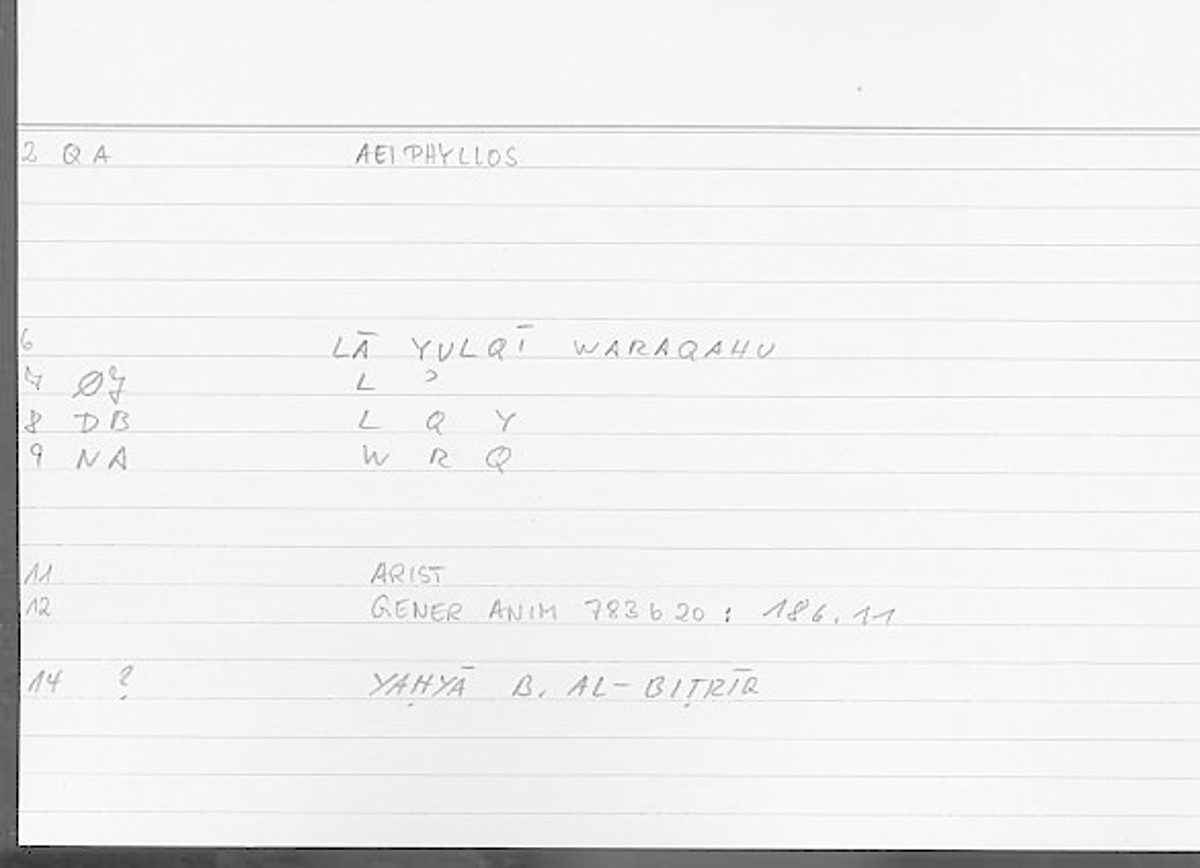 2 QA AEIPHYLLOS
6 LĀ YULQĪ WARAQAHU
7 ØJ L ʾ
8 DB L Q Y
9 NA W R Q
11 ARIST
12 GENER ANIM 783 b 20 : 186.11
14 ? YAḤYĀ B. AL-BIṬRĪQ